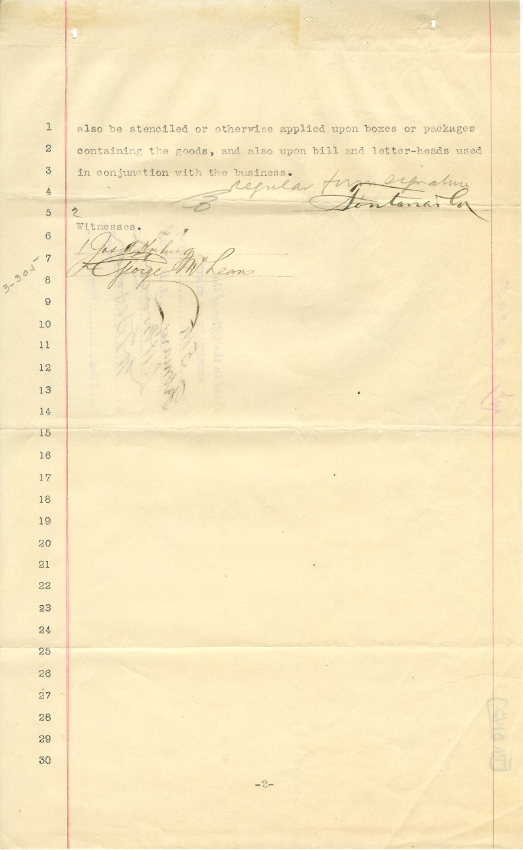 1 also be stenciled or otherwise applied upon boxes or packages
2 containing the goods, and also upon bill and letter-heads used
3 in conjunction with the business.
regular form signature
4
Fontana & Co
5 2
Witnesses.
6
1
7
George McLeans
8
3-305
9
10
11
12
13
14
15
16
17
18
19
20
21
22
23
24
25
26
27
28
29
30
-2-